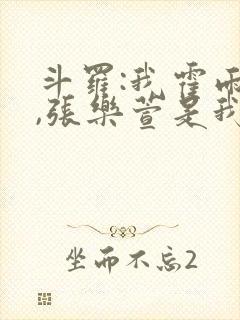 斗羅:我霍雨
,張樂萱是我
坐而不忘2